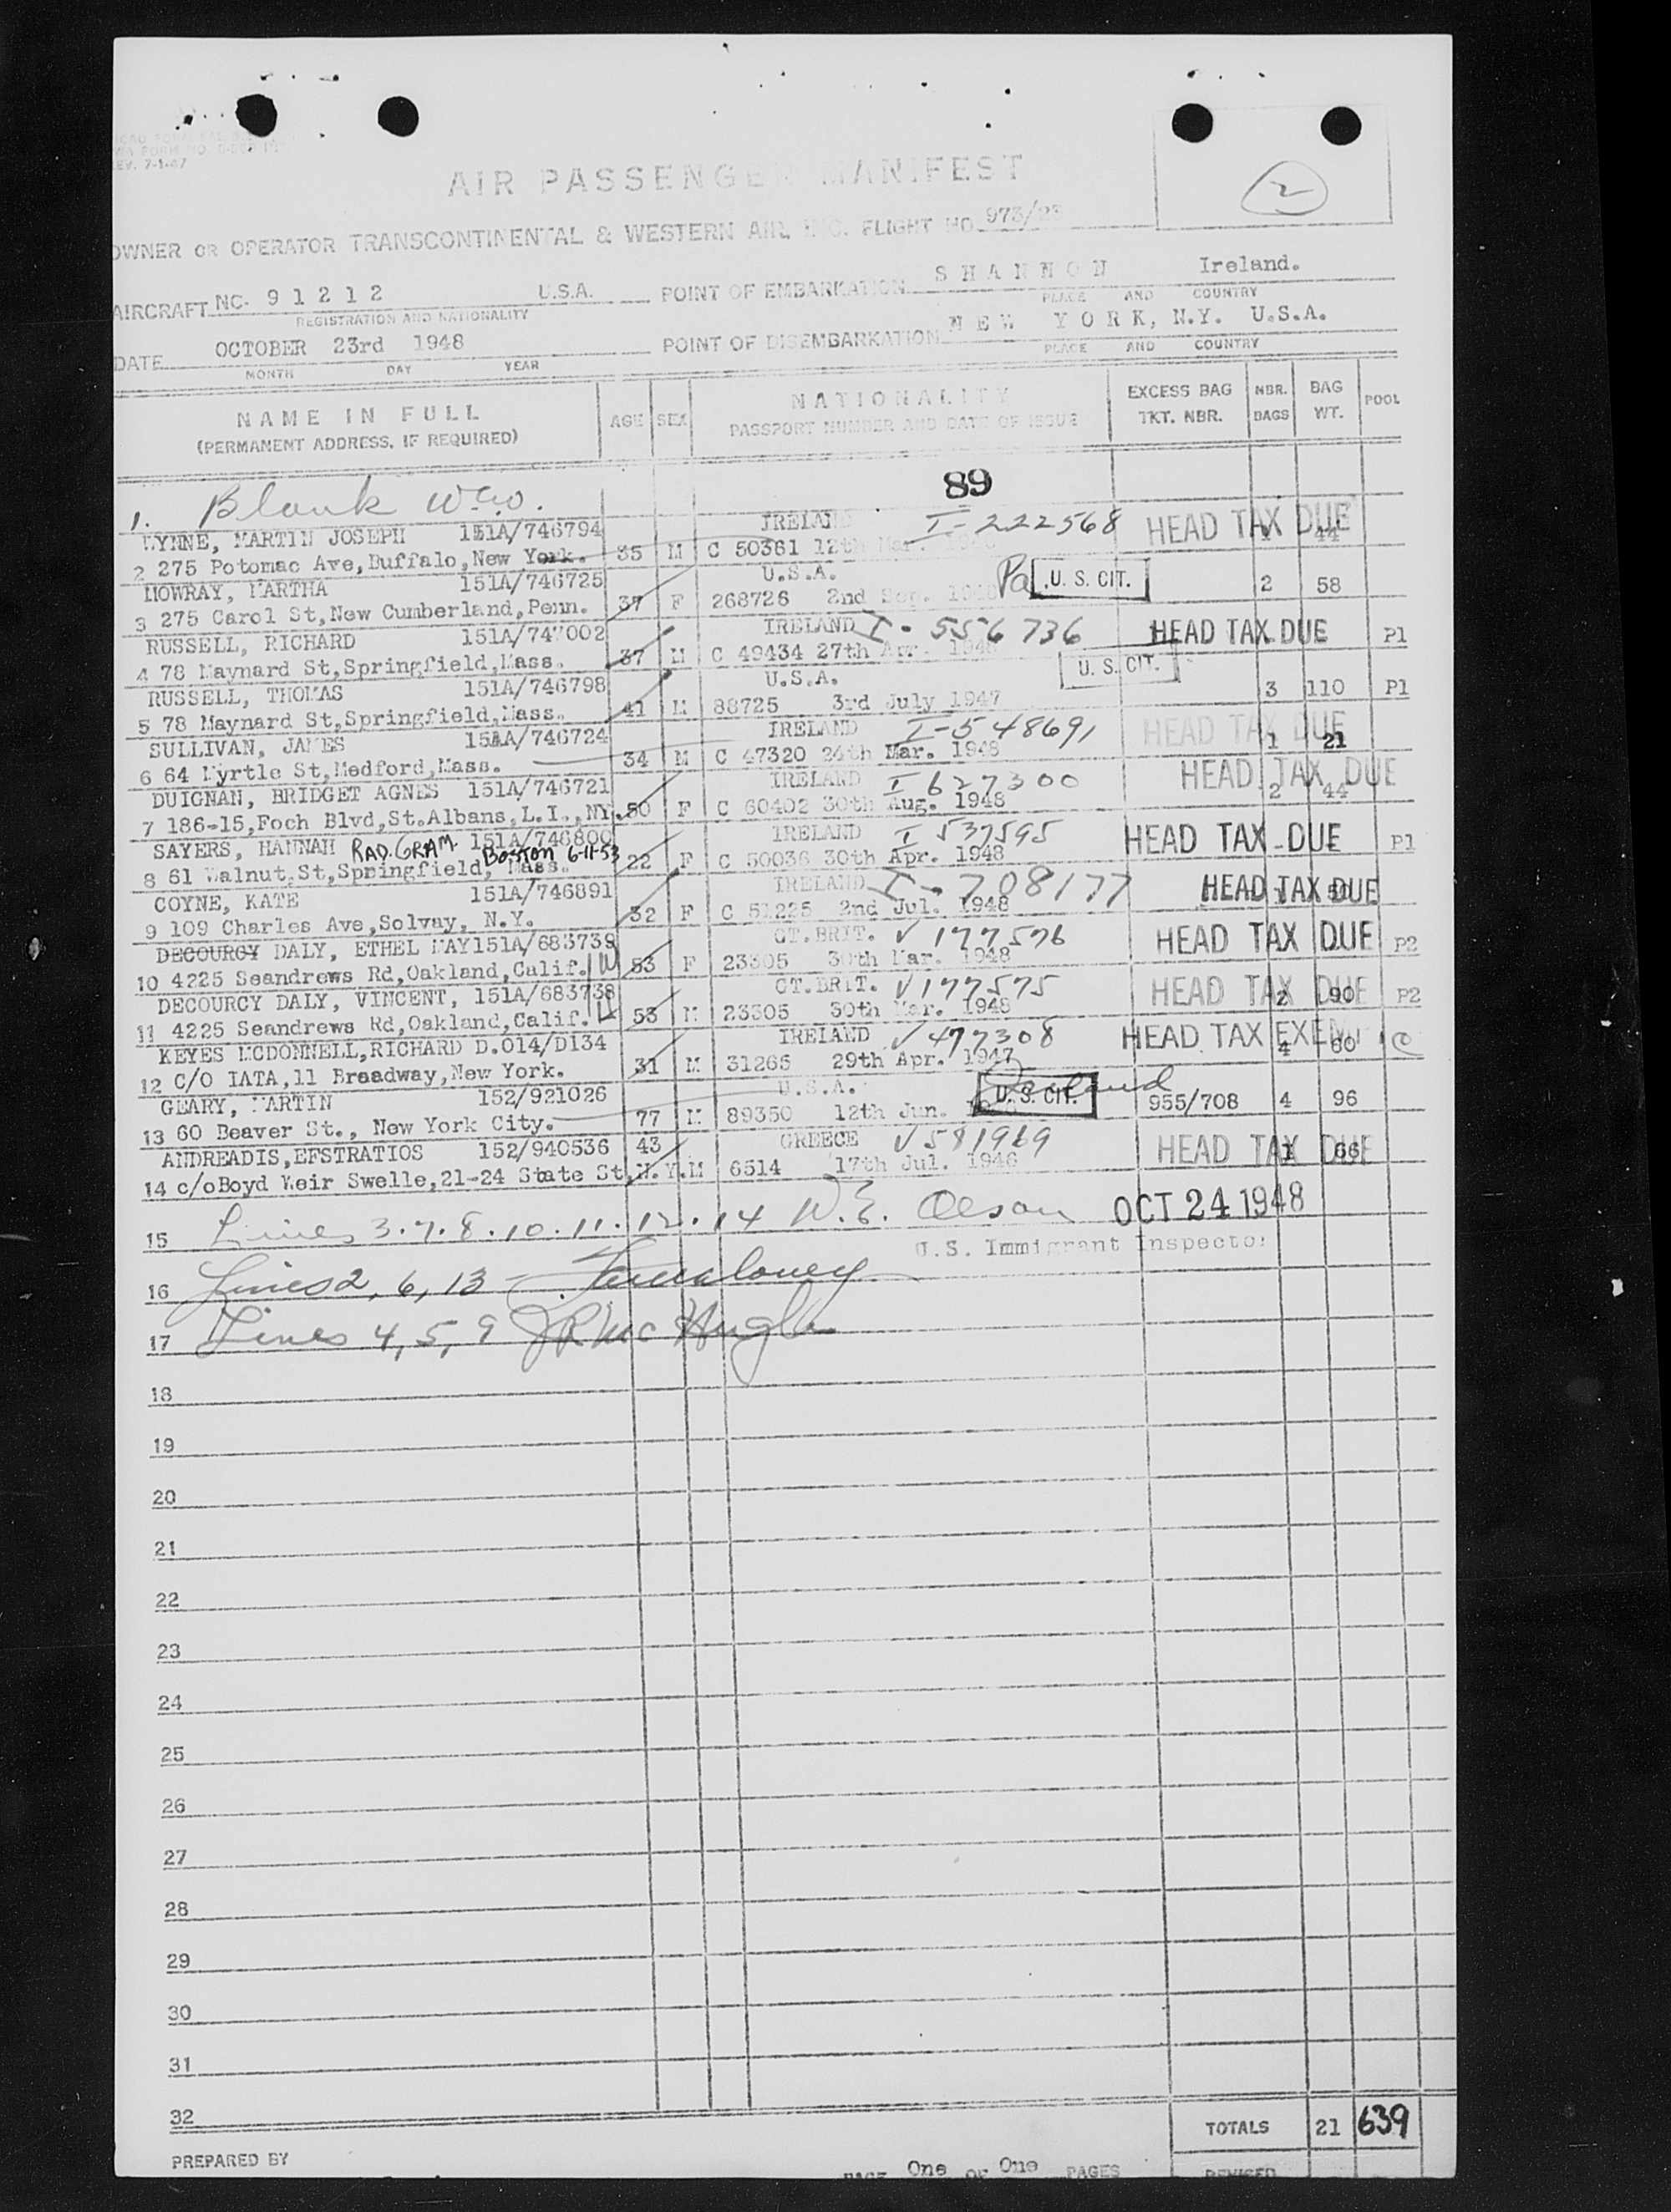 REV. 7-1-47
AIR PASSENGER MANIFEST
2
OWNER OR OPERATOR TRANSCONTINENTAL & WESTERN AIR, INC. FLIGHT NO. 973/23
AIRCRAFT NC. 9 1 2 1 2 U.S.A. POINT OF EMBARKATION S H A N N O N Ireland.
REGISTRATION AND NATIONALITY PLACE AND COUNTRY
DATE OCTOBER 23rd 1948 POINT OF DISEMBARKATION N E W Y O R K, N.Y. U.S.A.
MONTH DAY YEAR PLACE AND COUNTRY
NAME IN FULL (PERMANENT ADDRESS, IF REQUIRED) AGE SEX NATIONALITY PASSPORT NUMBER AND DATE OF ISSUE EXCESS BAG TKT. NBR. NBR. BAGS BAG WT. POOL
89
1. Blank
WYNNE, MARTIN JOSEPH 151A/746794 IRELAND I-222568 HEAD TAX DUE 44
2 275 Potomac Ave, Buffalo, New York. 35 M C 50361 12th Mar.
MOWRAY, MARTHA 151A/746725 U.S.A. U. S. CIT. 2 58
3 275 Carol St, New Cumberland, Penn. 37 F 268726 2nd Sep.
RUSSELL, RICHARD 151A/747002 IRELAND I-556736 HEAD TAX DUE P1
4 78 Maynard St, Springfield, Mass. 37 M C 49434 27th Apr. 1948
RUSSELL, THOMAS 151A/746798 U.S.A. U. S. CIT. 3 110 P1
5 78 Maynard St, Springfield, Mass. 41 M 88725 3rd July 1947
SULLIVAN, JAMES 151A/746724 IRELAND I-548691 HEAD TAX DUE 1 21
6 64 Myrtle St, Medford, Mass. 34 M C 47320 24th Mar. 1948
DUIGNAN, BRIDGET AGNES 151A/746721 IRELAND I 627300 HEAD TAX DUE 2 44
7 186-15, Foch Blvd, St. Albans, L.I., NY. 50 F C 60402 30th Aug. 1948
SAYERS, HANNAH RAD. GRAM. 151A/746800 IRELAND I 537595 HEAD TAX DUE P1
8 61 Walnut St, Springfield, Mass. Boston 6-11-53 22 F C 50036 30th Apr. 1948
COYNE, KATE 151A/746891 IRELAND I-708177 HEAD TAX DUE
9 109 Charles Ave, Solvay, N.Y. 32 F C 51225 2nd Jul. 1948
DECOURCY DALY, ETHEL MAY 151A/683739 GT. BRIT. V 177576 HEAD TAX DUE P2
10 4225 Seandrews Rd, Oakland, Calif. 53 F 23305 30th Mar. 1948
DECOURCY DALY, VINCENT, 151A/683738 GT. BRIT. V 177575 HEAD TAX DUE 2 90 P2
11 4225 Seandrews Rd, Oakland, Calif. 53 M 23305 30th Mar. 1948
KEYES MCDONNELL, RICHARD D. 014/D134 IRELAND V 477308 HEAD TAX EXEMPT 4 60
12 C/O IATA, 11 Broadway, New York. 31 M 31265 29th Apr. 1947
GEARY, MARTIN 152/921026 U.S.A. U. S. CIT. 955/708 4 96
13 60 Beaver St., New York City. 77 M 89350 12th Jun.
ANDREADIS, EFSTRATIOS 152/940536 43 GREECE V 581969 HEAD TAX DUE 1 66
14 c/o Boyd Weir Swelle, 21-24 State St, N.Y. M 6514 17th Jul. 1946
15 Lines 3.7.8.10.11.12.14 W. E. Olson OCT 24 1948
U.S. Immigrant Inspector
16 Lines 2, 6, 13
17 Lines 4, 5, 9 J R McHugh
18
19
20
21
22
23
24
25
26
27
28
29
30
31
32
TOTALS 21 639
PREPARED BY
PAGE One OF One PAGES REVISED